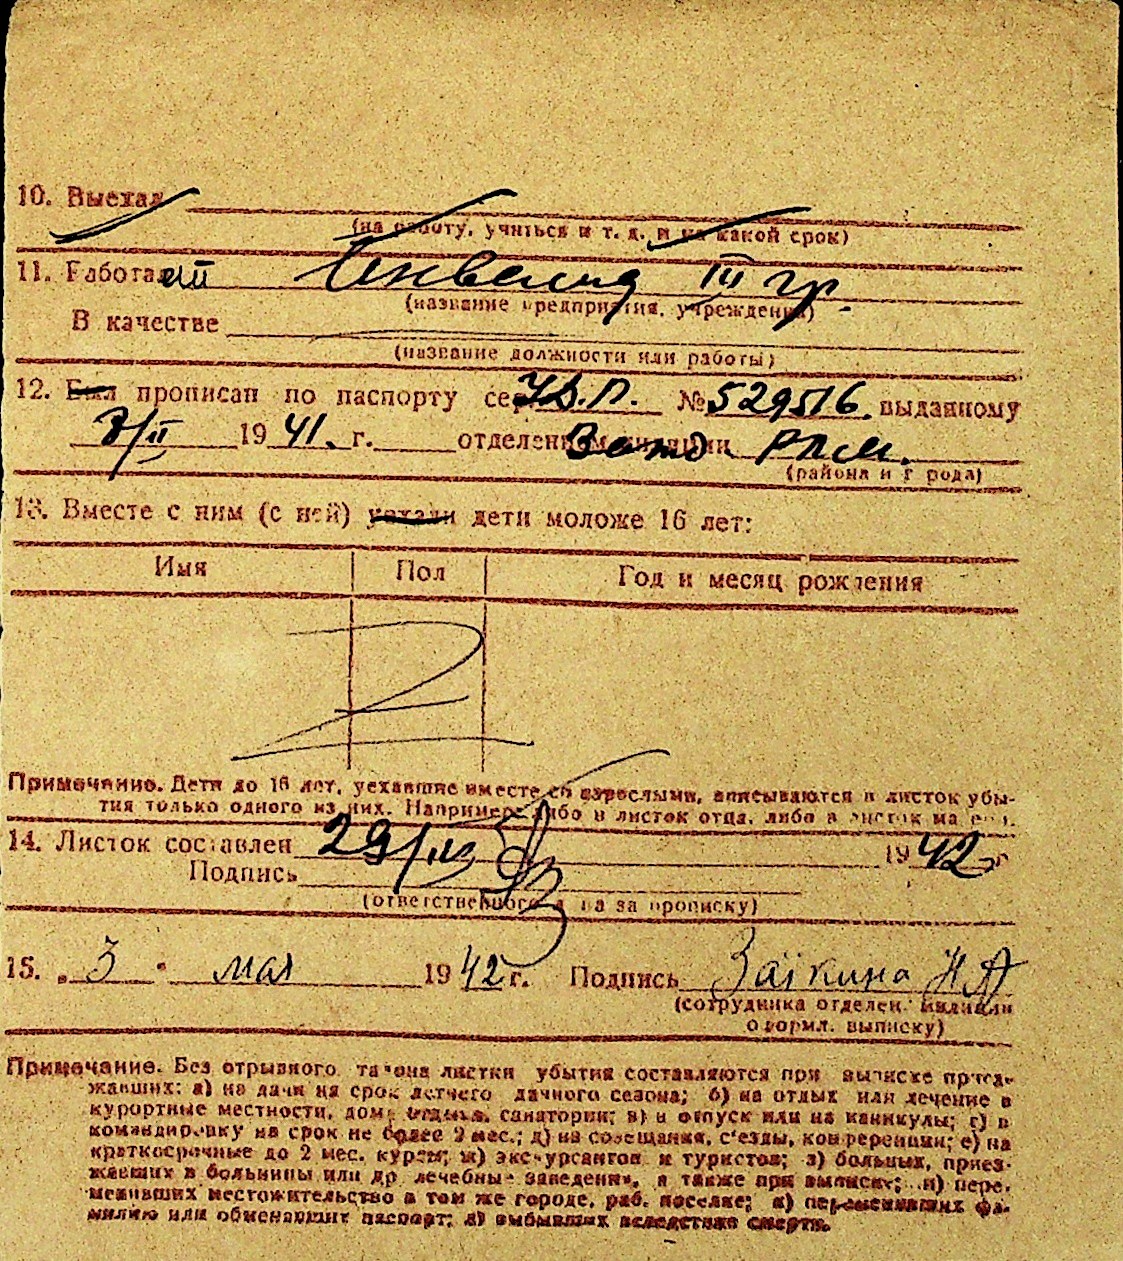 10. Выехал
(на работу, учиться и т. д. и на какой срок)
11. Работает Инвалид III гр.
(название предприятия, учреждения)
В качестве
(название должности или работы)
12. Был прописан по паспорту сер. № 529516 выданному
8/II 1941. г. отделением милиции РКМ.
(района и города)
13. Вместе с ним (с ней) уехали дети моложе 16 лет:
Имя Пол Год и месяц рождения
Примечание. Дети до 16 лет, уехавшие вместе со взрослыми, вписываются в листок убы-
тия только одного из них. Например либо в листок отца, либо в листок матери.
14. Листок составлен 29/IV 1942 г.
Подпись
(ответственного за прописку)
15. „3" мая 1942 г. Подпись Заікина Н А
(сотрудника отделен. милиции
оформл. выписку)
Примечание. Без отрывного талона листки убытия составляются при выписке приез-
жавших: а) на дачи на срок летнего дачного сезона; б) на отдых или лечение в
курортные местности, дома отдыха, санатории; в) в отпуск или на каникулы; г) в
командировку на срок не более 2 мес.; д) на совещания, с'езды, конференции; е) на
краткосрочные до 2 мес. курсы; ж) экскурсантов и туристов; з) больных, приез-
жавших в больницы или др. лечебные заведения, а также при выписке; и) пере-
менивших местожительство в том же городе, раб. поселке; к) переменивших фа-
милию или обменявших паспорт; л) выбывших вследствие смерти.